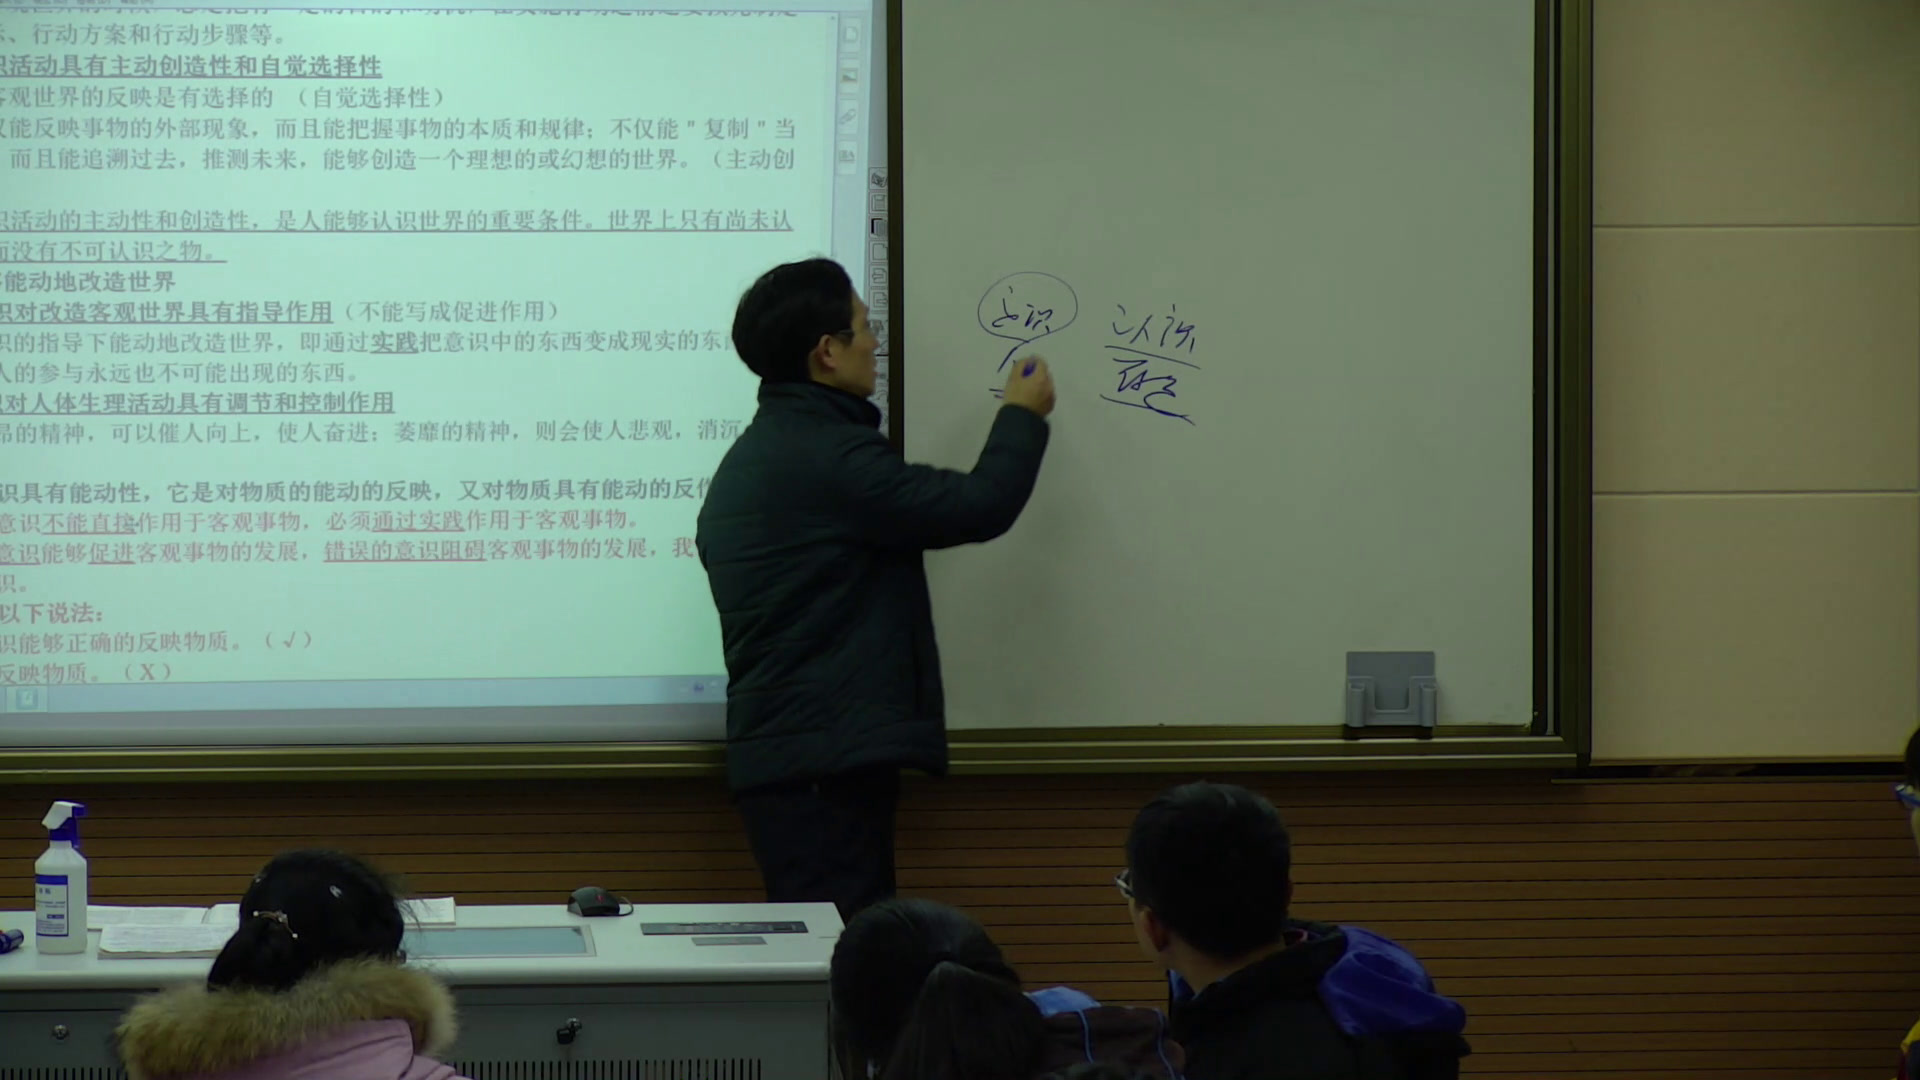 、行动方案和行动步骤等。
识活动具有主动创造性和自觉选择性
客观世界的反映是有选择的 （自觉选择性）
仅能反映事物的外部现象，而且能把握事物的本质和规律；不仅能"复制"当
而且能追溯过去，推测未来，能够创造一个理想的或幻想的世界。（主动创
识活动的主动性和创造性，是人能够认识世界的重要条件。世界上只有尚未认
而没有不可认识之物。
能动地改造世界
识对改造客观世界具有指导作用（不能写成促进作用）
识的指导下能动地改造世界，即通过实践把意识中的东西变成现实的东
人的参与永远也不可能出现的东西。
识对人体生理活动具有调节和控制作用
昂的精神，可以催人向上，使人奋进；萎靡的精神，则会使人悲观，消沉
识具有能动性，它是对物质的能动的反映，又对物质具有能动的反作
意识不能直接作用于客观事物，必须通过实践作用于客观事物。
意识能够促进客观事物的发展，错误的意识阻碍客观事物的发展，我
识。
以下说法：
识能够正确的反映物质。（√）
反映物质。（X）
意识
认识